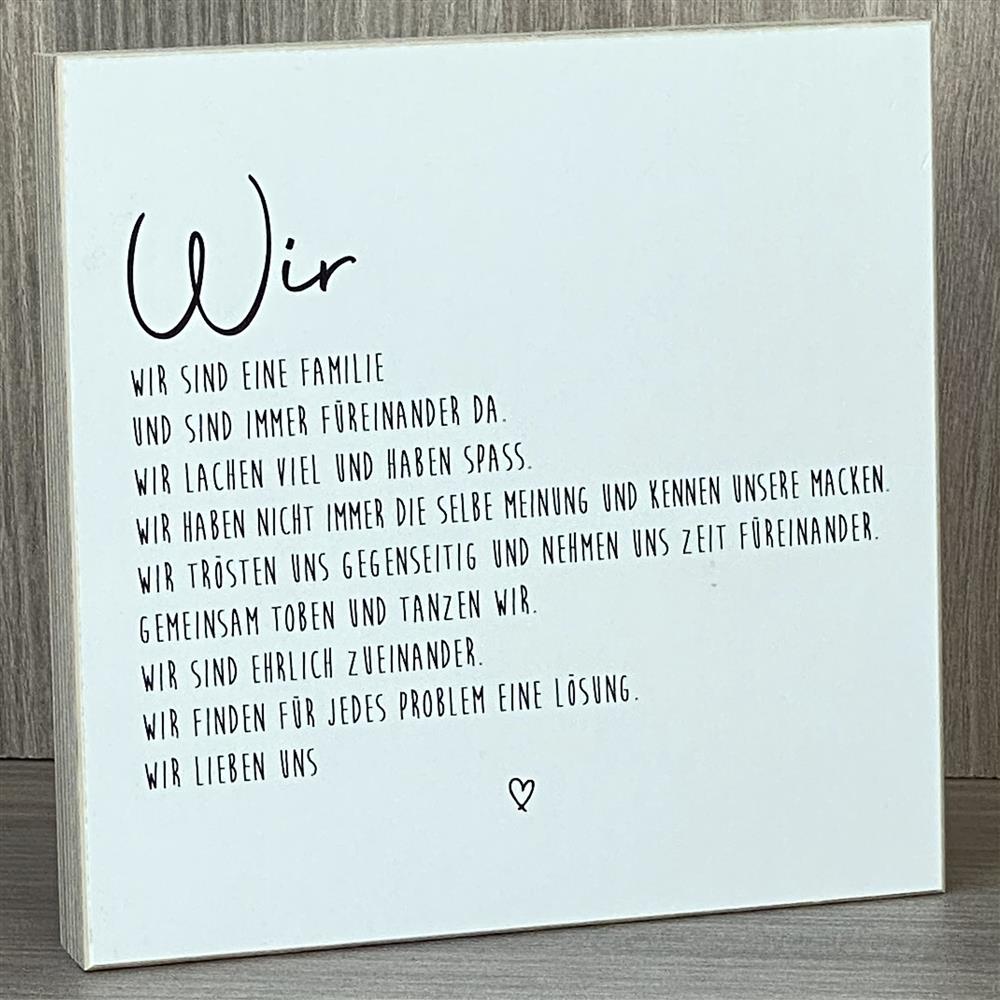 Wir
WIR SIND EINE FAMILIE
UND SIND IMMER FÜREINANDER DA.
WIR LACHEN VIEL UND HABEN SPASS.
WIR HABEN NICHT IMMER DIE SELBE MEINUNG UND KENNEN UNSERE MACKEN.
WIR TRÖSTEN UNS GEGENSEITIG UND NEHMEN UNS ZEIT FÜREINANDER.
GEMEINSAM TOBEN UND TANZEN WIR.
WIR SIND EHRLICH ZUEINANDER.
WIR FINDEN FÜR JEDES PROBLEM EINE LÖSUNG.
WIR LIEBEN UNS